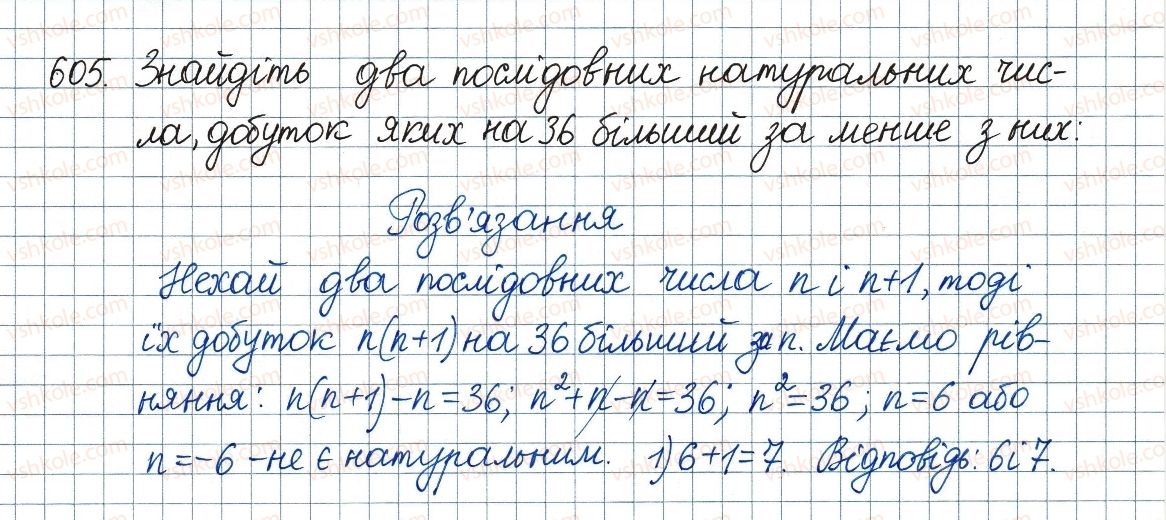 605. Знайдіть два послідовних натуральних чис-
ла, добуток яких на 36 більший за менше з них:
Розв'язання
Нехай два послідовних числа n і n+1, тоді
їх добуток n(n+1) на 36 більший за n. Маємо рів-
няння: n(n+1)-n=36; n²+n-n=36; n²=36; n=6 або
n=-6 -не є натуральним. 1) 6+1=7. Відповідь: 6 і 7.